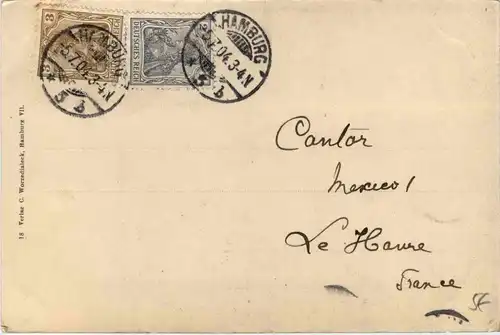 3
DEUTSCHES REICH
HAMBURG
5.7.04.3-4N
* 5 b
HAMBURG
5.7.04.3-4N
* 5 b
18 Verlag C. Worzedialeck, Hamburg VII.
Cantor
Mexico 1
Le Havre
France